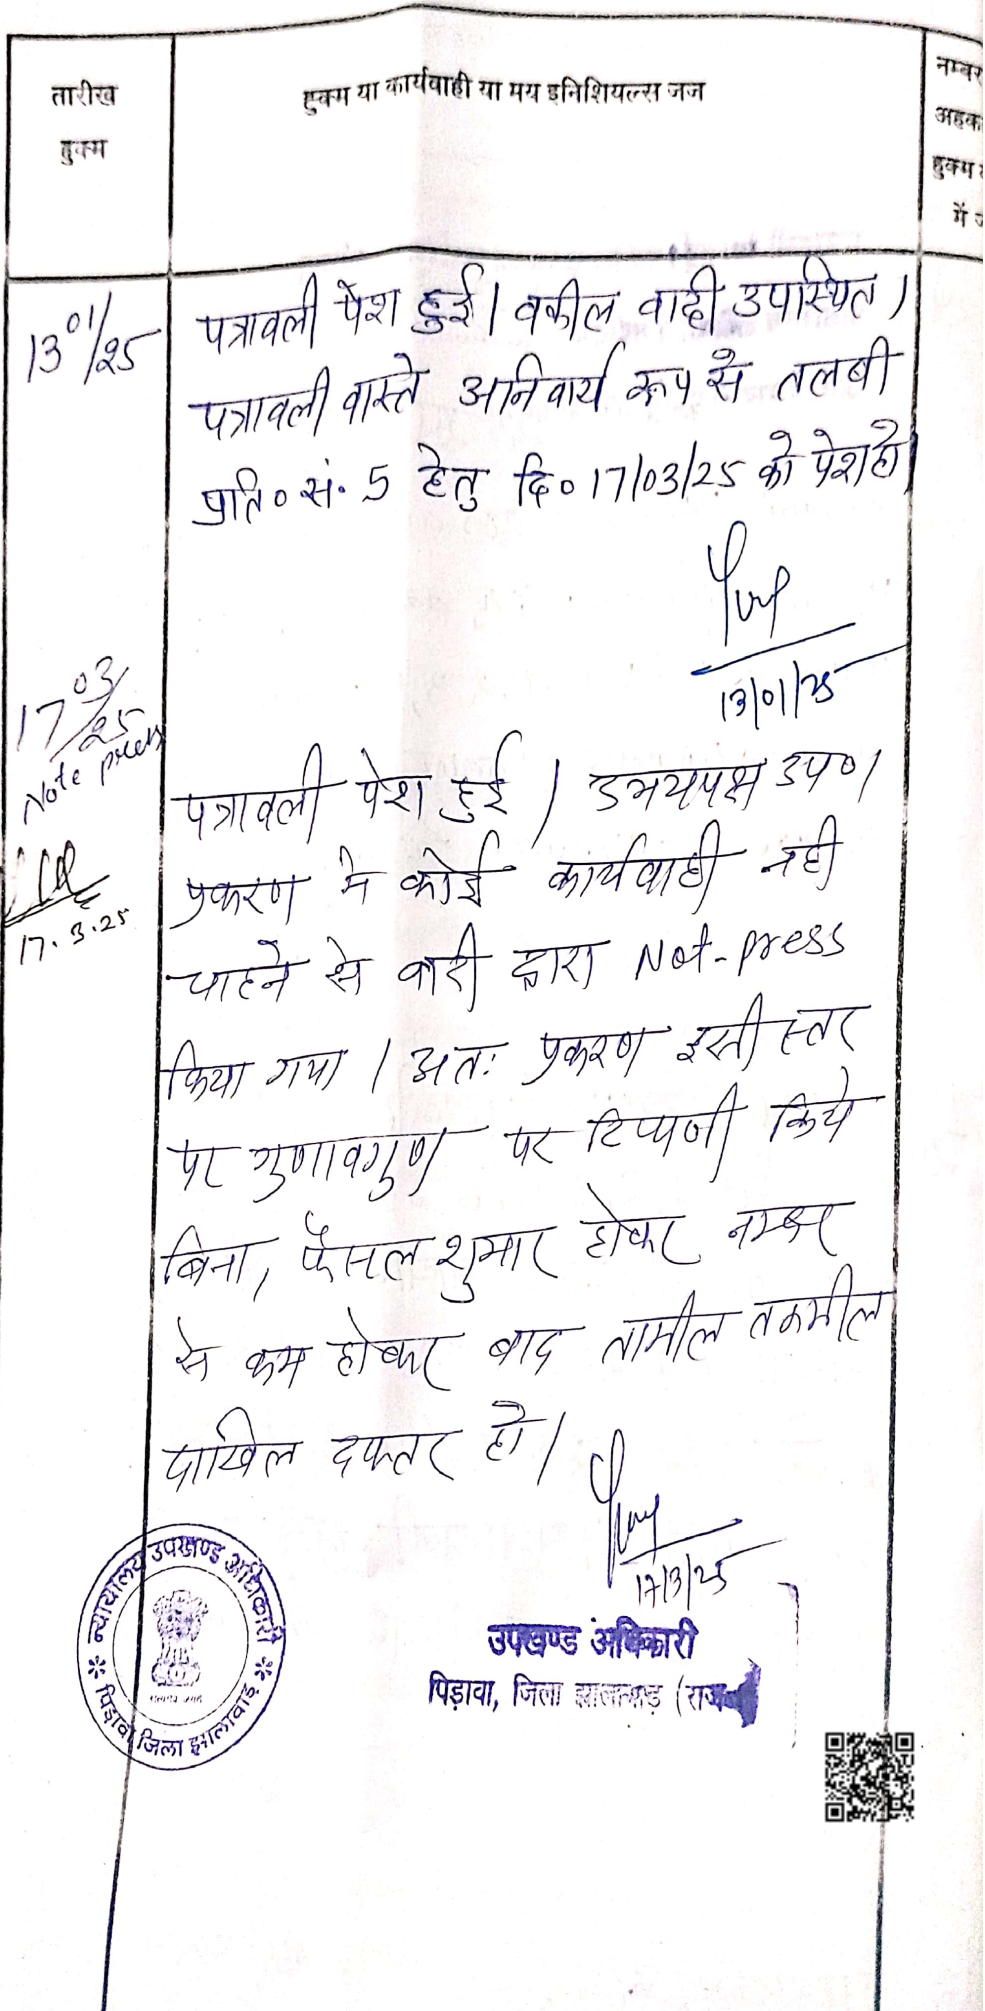 तारीख
हुक्म
हुक्म या कार्यवाही या मय इनिशियल्स जज
नम्बर
अहक
हुक्म
में
13/01/25
पत्रावली पेश हुई। वकील वादी उपस्थित।
पत्रावली वास्ते अनिवार्य रूप से तलबी
प्रति० सं. 5 हेतु दि० 17/03/25 को पेश हो।
13/01/25
17/03/25
Note press
17.3.25
पत्रावली पेश हुई। उभयपक्ष उप०।
प्रकरण मे कोई कार्यवाही नही
चाहने से वादी द्वारा Not-press
किया गया। अतः प्रकरण इसी स्तर
पर गुणावगुण पर टिप्पणी किये
बिना, फैसल शुमार होकर नम्बर
से कम होकर बाद तामील तकमील
दाखिल दफ्तर हो।
17/3/25
उपखण्ड अधिकारी
पिड़ावा, जिला झालावाड़ (राज
न्यायालय उपखण्ड अधिकारी
पिड़ावा जिला झालावाड़